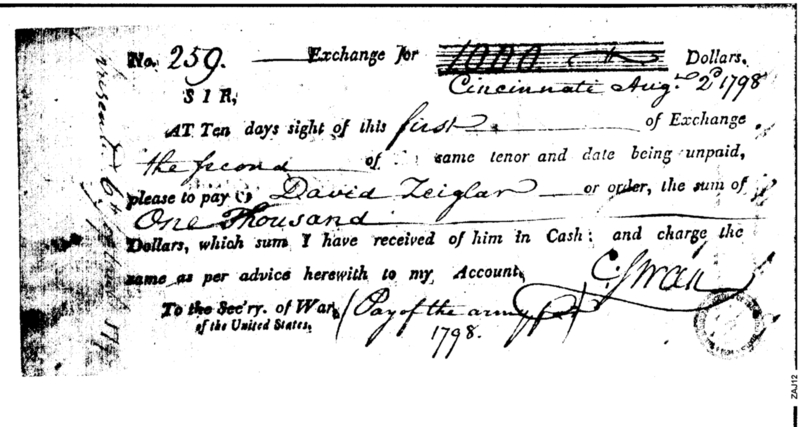 No. 259. Exchange for 1000 Dollars.
Cincinnati Augt. 2d 1798
SIR,
AT Ten days sight of this first of Exchange
the second of same tenor and date being unpaid,
please to pay David Zeiglar or order, the sum of
One Thousand
Dollars, which sum I have received of him in Cash; and charge the
same as per advice herewith to my Account,
C Swan
To the Sec'ry. of War, (Pay of the army
of the United States,
1798.
ZAJ12